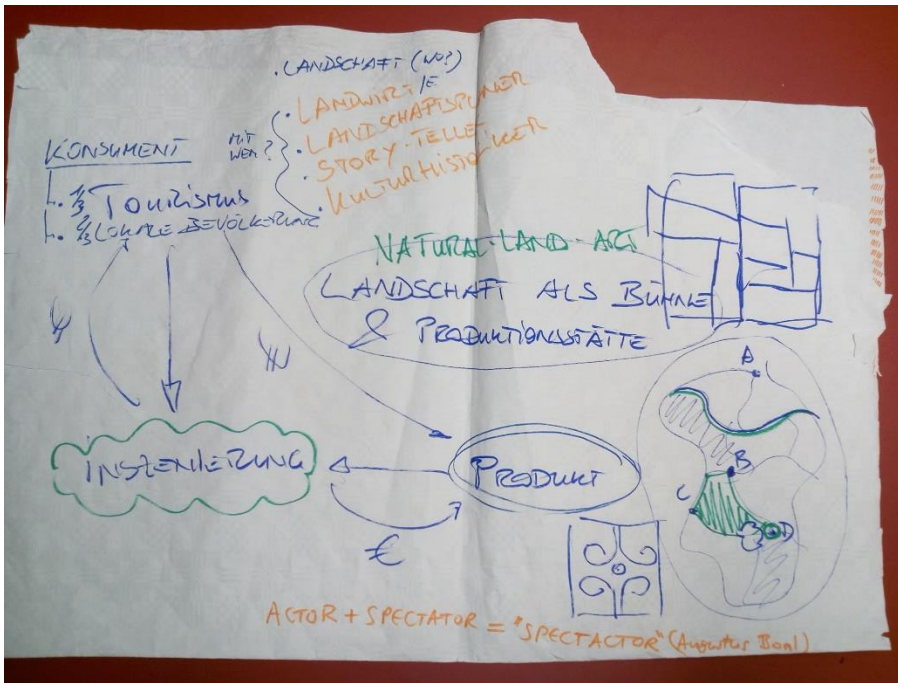 . LANDSCHAFT (WO?)
. LANDWIRT/E
. LANDSCHAFTSPLANER
. STORY-TELLER
. KULTURHISTORIKER
MIT WEM?
KONSUMENT
. 1/3 TOURISMUS
. 2/3 LOKALE BEVÖLKERUNG
NATURAL-LAND-ART
LANDSCHAFT ALS BÜHNE
& PRODUKTIONSSTÄTTE
A
B
C
D
INSZENIERUNG
PRODUKT
€
ACTOR + SPECTATOR = "SPECTACTOR" (Augustus Boal)